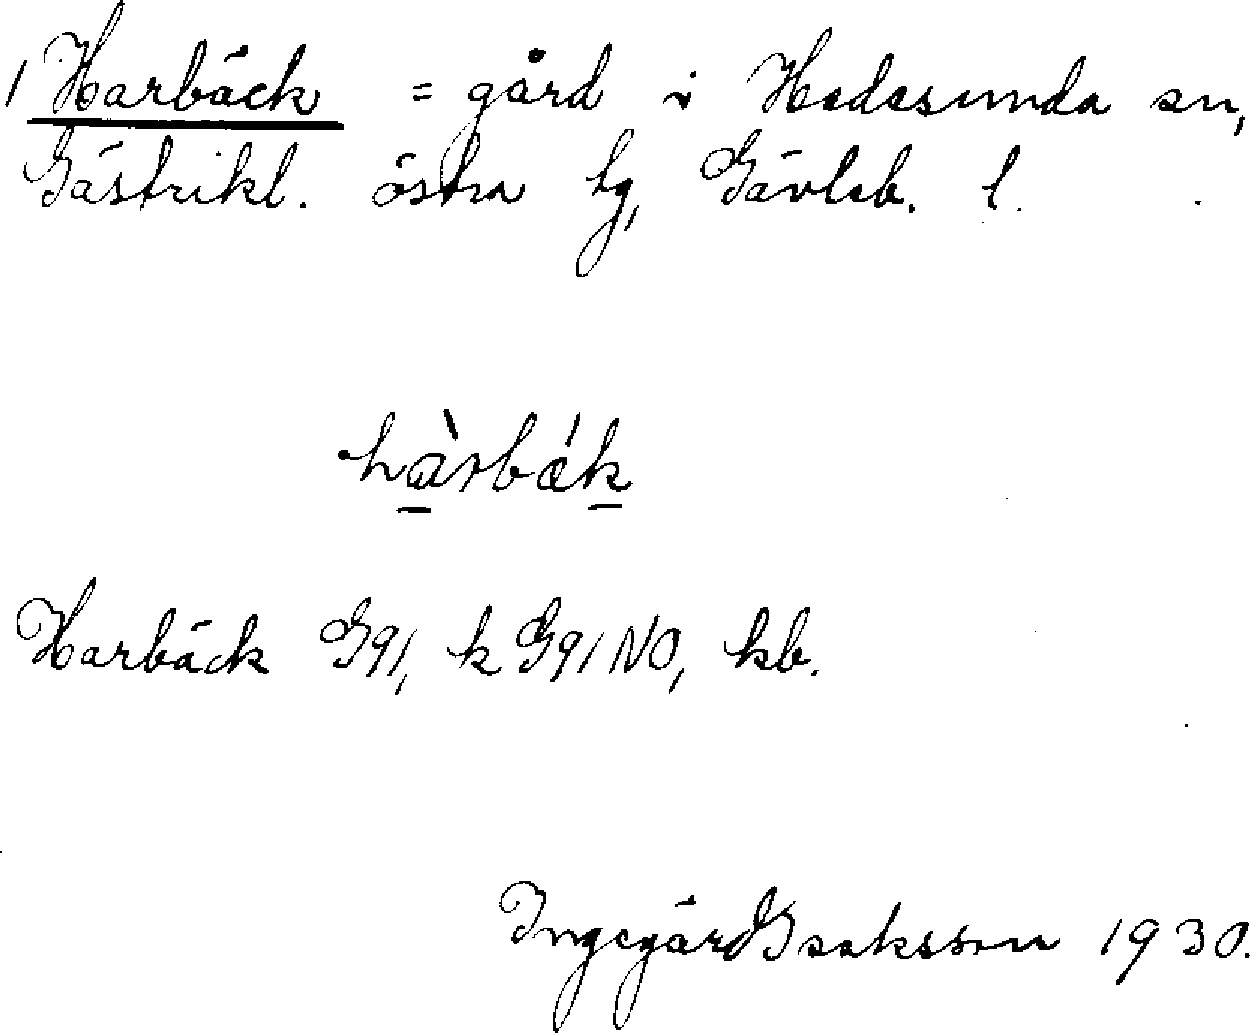 1 Harbäck = gård i Hedesunda sn,
Gästrikl. östra tg, Gävleb. l.
hàrbǽk
Harbäck G91, k G91 NO, kb.
Ingegärd Isaksson 1930.